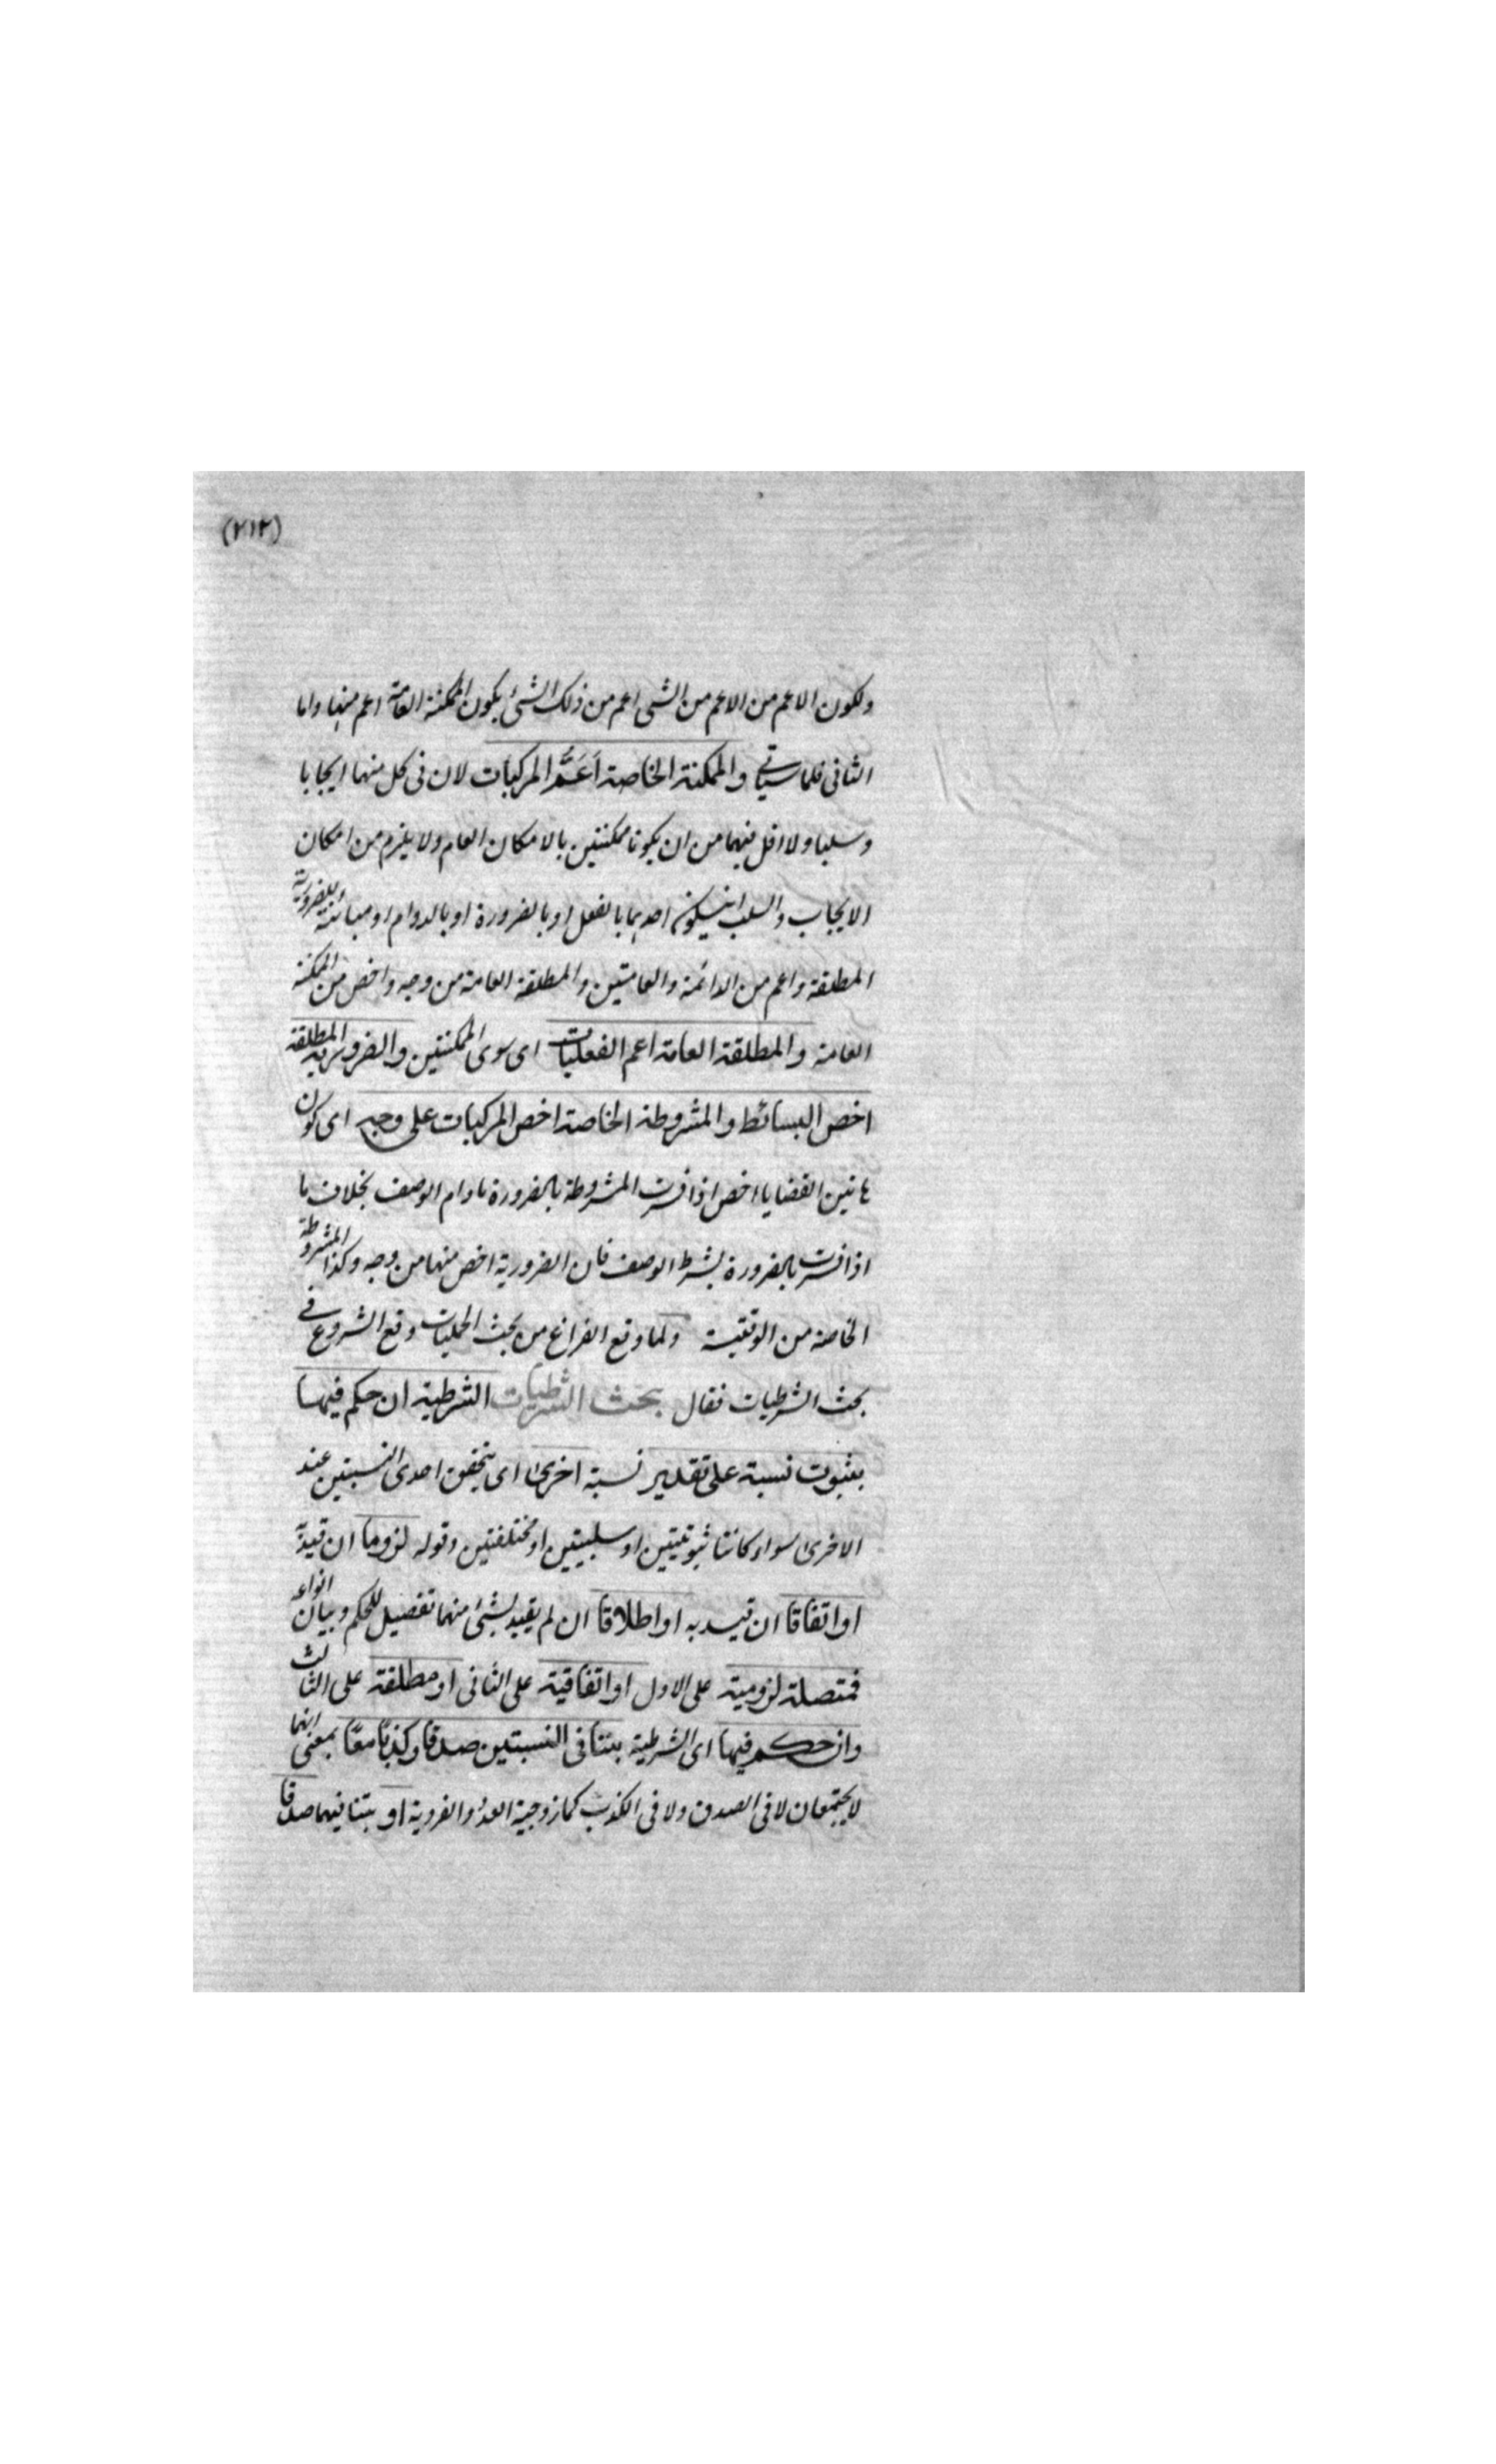 (٢١٢)
ولكون الاعم من الاعم من الشى اعم من ذلك الشئ يكون الممكنة العامة اعم منها واما
الثانى فلما سياتى والممكنة الخاصة اَعَمُّ المركبات لان فى كل منهما ايجابا
وسلبا ولا اقل فيهما من ان يكونا ممكنتين بالامكان العام ولا يلزم من امكان
الايجاب والسلب ان يكون احدهما بالفعل او بالضرورة او بالدوام او مباينة للضرورية
المطلقة واعم من الدائمة والعامتين والمطلقة العامة من وجه واخص من الممكنة
العامة والمطلقة العامة اعم الفعليات اى سوى الممكنتين والضرورية المطلقة
اخص البسائط والمشروطة الخاصة اخص المركبات على وجه اى كون
هاتين القضايا اخص اذا فسرت المشروطة بالضرورة مادام الوصف بخلاف ما
اذا فسرت بالضرورة بشرط الوصف فان الضرورية اخص منها من وجه وكذا المشروطة
الخاصة من الوقتية ولما وقع الفراغ من بحث الحمليات وقع الشروع فى
بحث الشرطيات فقال بحث الشرطيات الشرطية ان حكم فيها
بثبوت نسبة على تقدير نسبة اخرى اى بتحقق احدى النسبتين عند
الاخرى سواء كانتا ثبوتيتين او سلبيتين او مختلفتين وقوله لزوما ان قيد به
او اتفاقا ان قيد به او اطلاقا ان لم يقيد بشئ منهما تفصيل للحكم وبيان انواعه
فمتصلة لزومية على الاول او اتفاقية على الثانى او مطلقة على الثالث
وان حكم فيها اى الشرطية بتنافى النسبتين صدقا وكذبًا معًا بمعنى انهما
لا يجتمعان لا فى الصدق ولا فى الكذب كما زوجية العدد والفردية او بتنافيهما صدقا